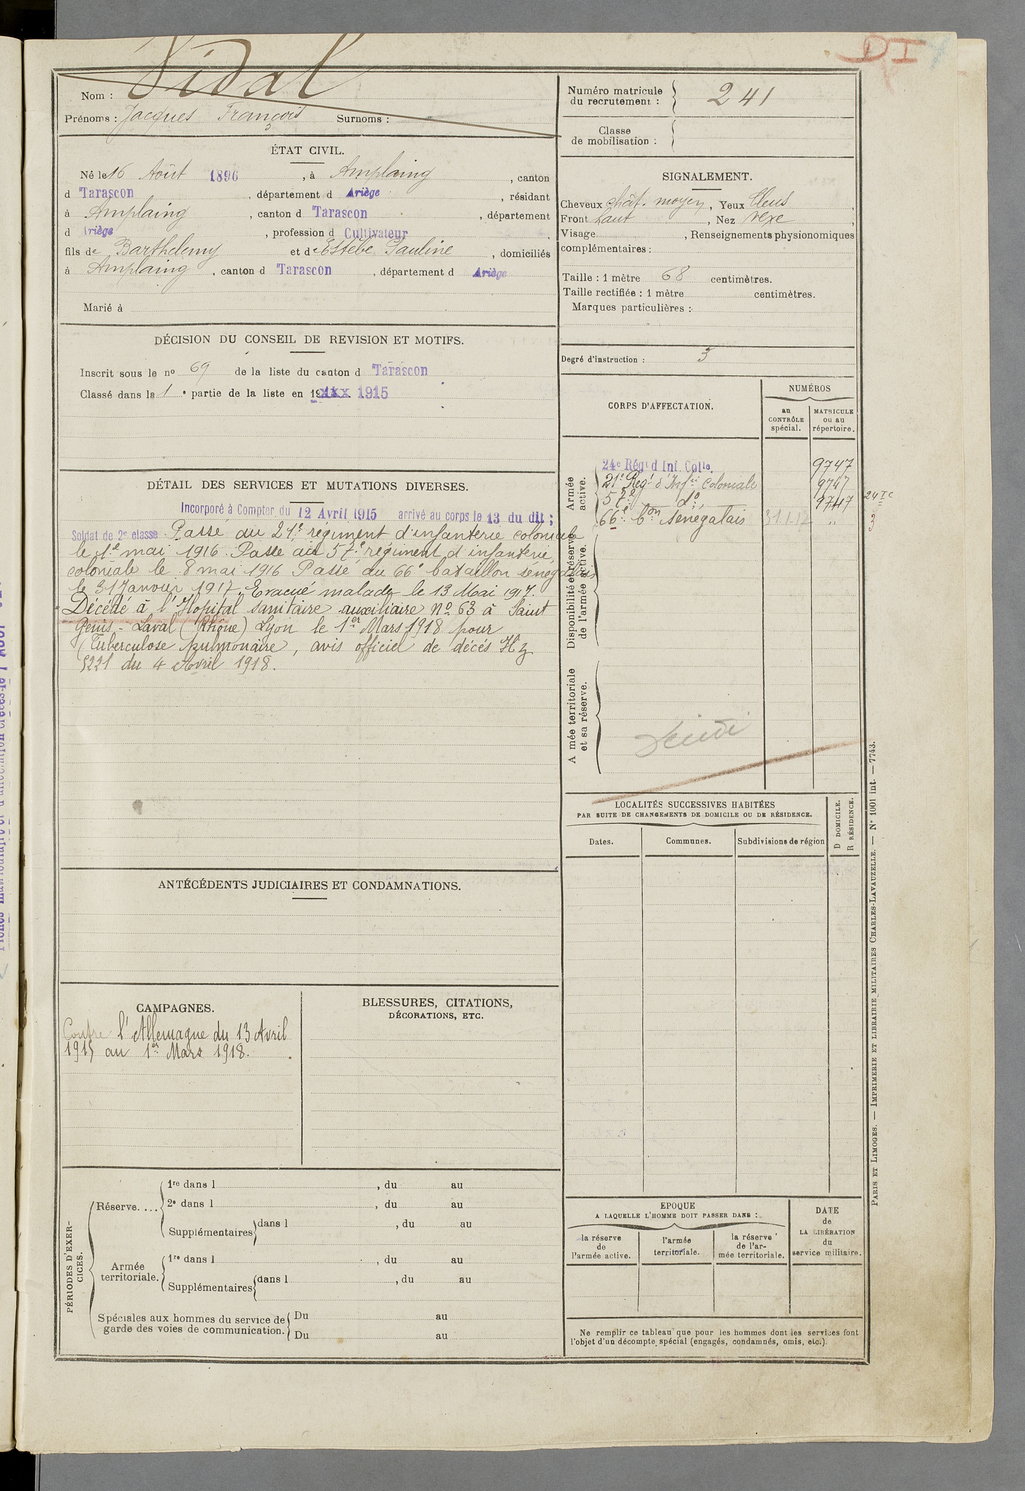 DI
Nom : Vidal
Prénoms : Jacques François Surnoms :
Numéro matricule du recrutement : 241
Classe de mobilisation :
ÉTAT CIVIL.
Né le 16 Août 1896, à Amplaing, canton
d Tarascon, département d Ariège, résidant
à Amplaing, canton d Tarascon, département
d Ariège, profession d Cultivateur
fils de Barthélemy et de Estèbe Pauline, domiciliés
à Amplaing, canton d Tarascon, département d Ariège
Marié à
SIGNALEMENT.
Cheveux chât. moyen, Yeux bleus,
Front haut, Nez vexe,
Visage, Renseignements physionomiques
complémentaires :
Taille : 1 mètre 68 centimètres.
Taille rectifiée : 1 mètre centimètres.
Marques particulières :
Degré d'instruction : 3
DÉCISION DU CONSEIL DE REVISION ET MOTIFS.
Inscrit sous le nº 69 de la liste du canton d Tarascon
Classé dans la 1e partie de la liste en 1915
DÉTAIL DES SERVICES ET MUTATIONS DIVERSES.
Incorporé à Compter du 12 Avril 1915 arrivé au corps le 13 du dit ;
Soldat de 2e classe. Passé au 21e régiment d'infanterie coloniale
le 1e mai 1916. Passé au 57e régiment d'infanterie
coloniale le 8 mai 1916 Passé au 66e bataillon sénégalais
le 31 Janvier 1917. Evacué malade le 13 Mai 1917.
Décédé à l'Hopital sanitaire auxiliaire nº 63 à Saint
Genis-Laval (Rhône) Lyon le 1er Mars 1918 pour
Tuberculose Pulmonaire, avis officiel de décès Hz
5221 du 4 Avril 1918.
CORPS D'AFFECTATION.
NUMÉROS
au CONTRÔLE spécial.
MATRICULE ou au répertoire.
Armée active.
24e Régt d Inf. Colle. 9747
21e Regt d'Infie coloniale 9747
57e do 9747
66e Bon Sénégalais 31.1.17 "
24 IC
3
Disponibilité et réserve de l'armée active.
Armée territoriale et sa réserve.
LOCALITÉS SUCCESSIVES HABITÉES
PAR SUITE DE CHANGEMENTS DE DOMICILE OU DE RÉSIDENCE.
Dates.
Communes.
Subdivisions de région
D DOMICILE.
R RÉSIDENCE.
ANTÉCÉDENTS JUDICIAIRES ET CONDAMNATIONS.
CAMPAGNES.
Contre l'Allemagne du 13 Avril
1915 au 1er Mars 1918.
BLESSURES, CITATIONS,
DÉCORATIONS, ETC.
PÉRIODES D'EXERCICES.
Réserve....
1re dans l , du au
2e dans l , du au
Supplémentaires dans l , du au
Armée territoriale.
1re dans l , du au
Supplémentaires dans l , du au
Spéciales aux hommes du service de garde des voies de communication.
Du au
Du au
EPOQUE
A LAQUELLE L'HOMME DOIT PASSER DANS :
la réserve de l'armée active.
l'armée territoriale.
la réserve de l'armée territoriale.
DATE de LA LIBÉRATION du service militaire.
Ne remplir ce tableau que pour les hommes dont les services font
l'objet d'un décompte spécial (engagés, condamnés, omis, etc.).
PARIS ET LIMOGES. — IMPRIMERIE ET LIBRAIRIE MILITAIRES CHARLES-LAVAUZELLE. — Nº 1001 int. — 7743.